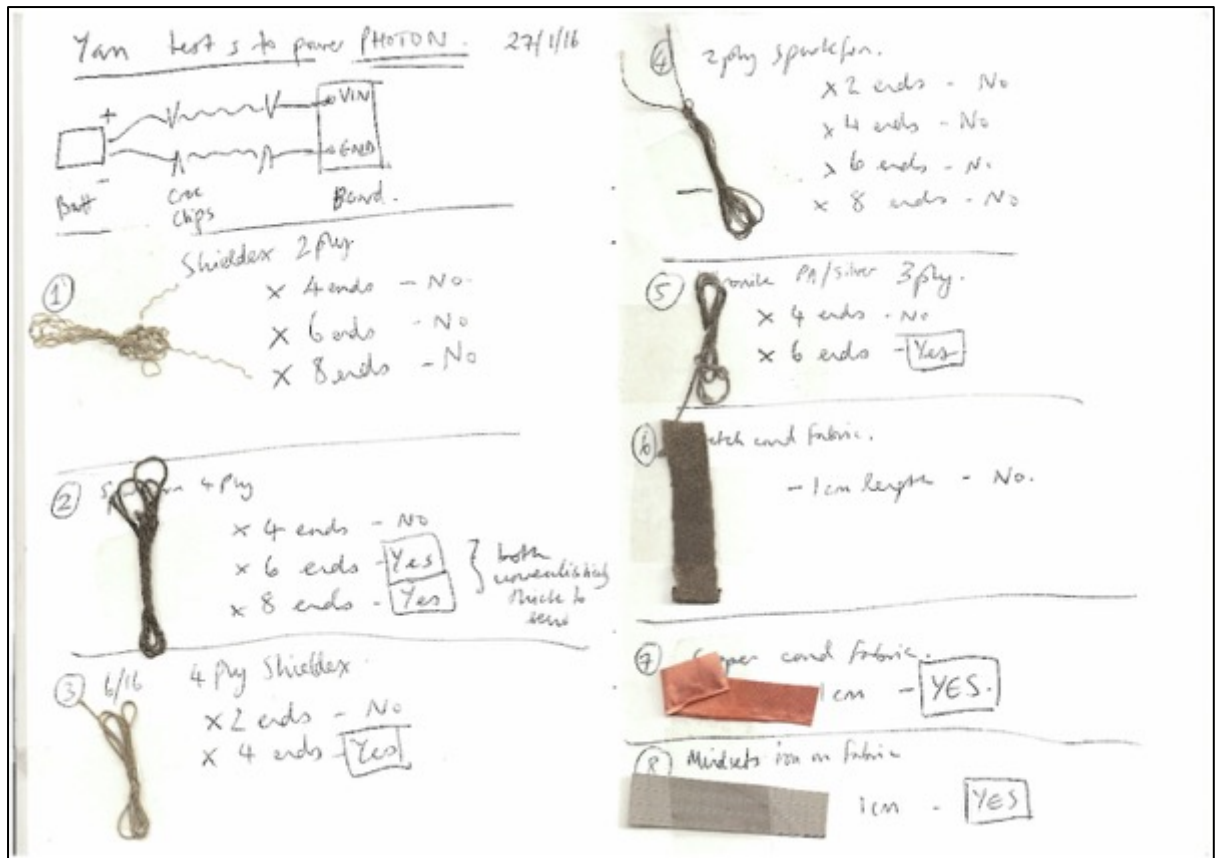 Yarn tests to power PHOTON. 27/1/16
+ VIN
GND
-
Batt Croc Board.
Clips
① Shieldex 2 ply
× 4 ends - No.
× 6 ends - No
× 8 ends - No
② 4 Ply
× 4 ends - No
× 6 ends - Yes
× 8 ends - Yes
} both
unrealistically
thick to
sew
③ 6/16 4 Ply Shieldex.
× 2 ends - No
× 4 ends - Yes
④ 2 ply Sparkfun.
× 2 ends - No
× 4 ends - No
× 6 ends - N.
× 8 ends - No
⑤ PA/Silver 3 ply.
× 4 ends - No
× 6 ends - Yes
⑥ etch cond fabric.
- 1cm length - No.
⑦ pper cond fabric.
1 cm - YES.
8 Mindsets iron on fabric
1 cm - YES